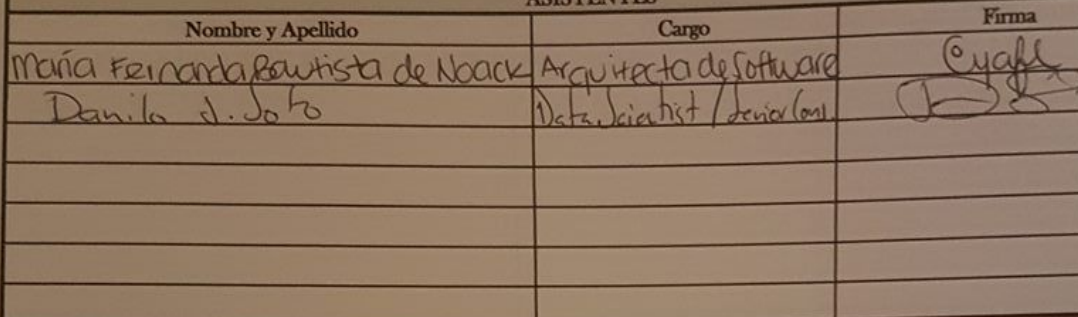 ASISTENTES
Nombre y Apellido Cargo Firma
María Fernanda Bautista de Noack Arquitecta de Software
Danilo J. Soto Data Scientist / Senior Cons.